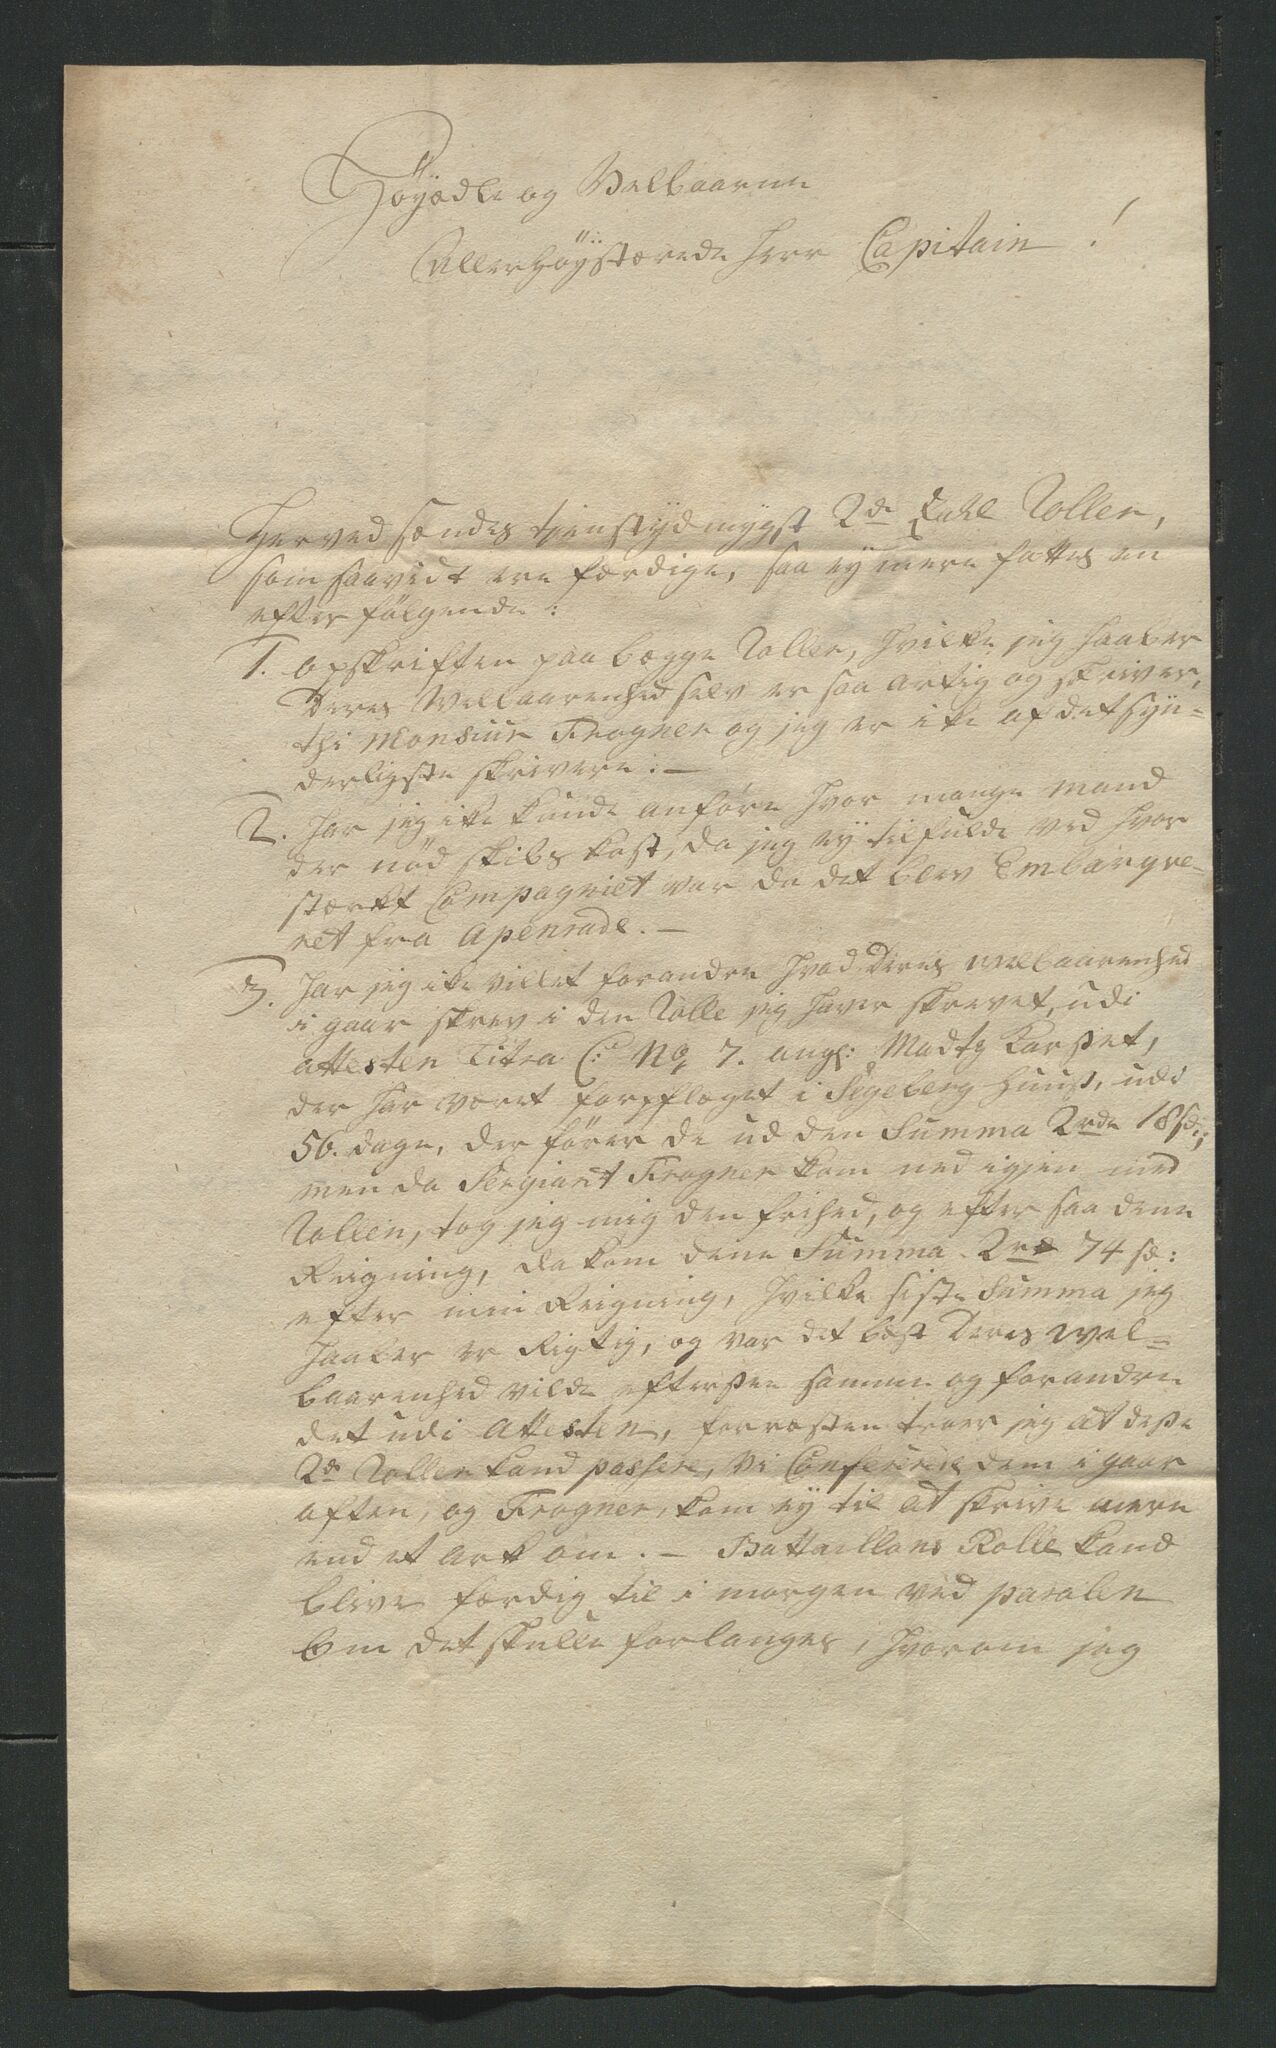 Höyædle og Velbaarne
Allerhöystærede Herr Capitain!
Herved sendes tienstydmygst 2de Rolle Roller,
som saavidt ere færdige, saa ey mere fattes en
efterfölgende:
1. Opskriften paa begge Roller, hvilke jeg haaber
Deres Velbaarenhed selv er saa artig og skriver,
thi Monsiur Frogner og jeg er ike af det syn-
derligste skrivere. —
2. Har jeg ike kunde anföre hvor mange Mand
der nöd skibs kost, da jeg ey tilfulde ved hvor
stærkt Compagniet var da det blev Embarqve-
ret fra Apenrade. —
3. Har jeg ike villet forandre hvad Deres Velbaarenhed
i gaar skrev i den Rolle jeg haver skrevet, udi
attesten Litra C: No 7. ang: Madtz Karset,
der har været forpfleget i Segeberg Huus, udi
56. dage, der förer de ud den Summa 2rde 18 s:;
men da Sergiant Frogner kom ned igjen med
Rollen, tog jeg mig den frihed, og eftersaa denne
Reigning, da kom denne Summa 2rd 74 s:
efter min Reigning, hvilke siste Summa jeg
haaber er Rigtig, og var det best Deres Wel-
baarenhed vilde eftersee samme og forandre
det udi Attesten, forresten troer jeg at desse
2de Roller kand passere, vi Confererede dem i gaar
aften, og Frogner kom ey til at skrive mere
end et ark om. — Battaillons Rolle kand
blive færdig til i morgen ved parolen
om det skulle forlanges, hvorom jeg